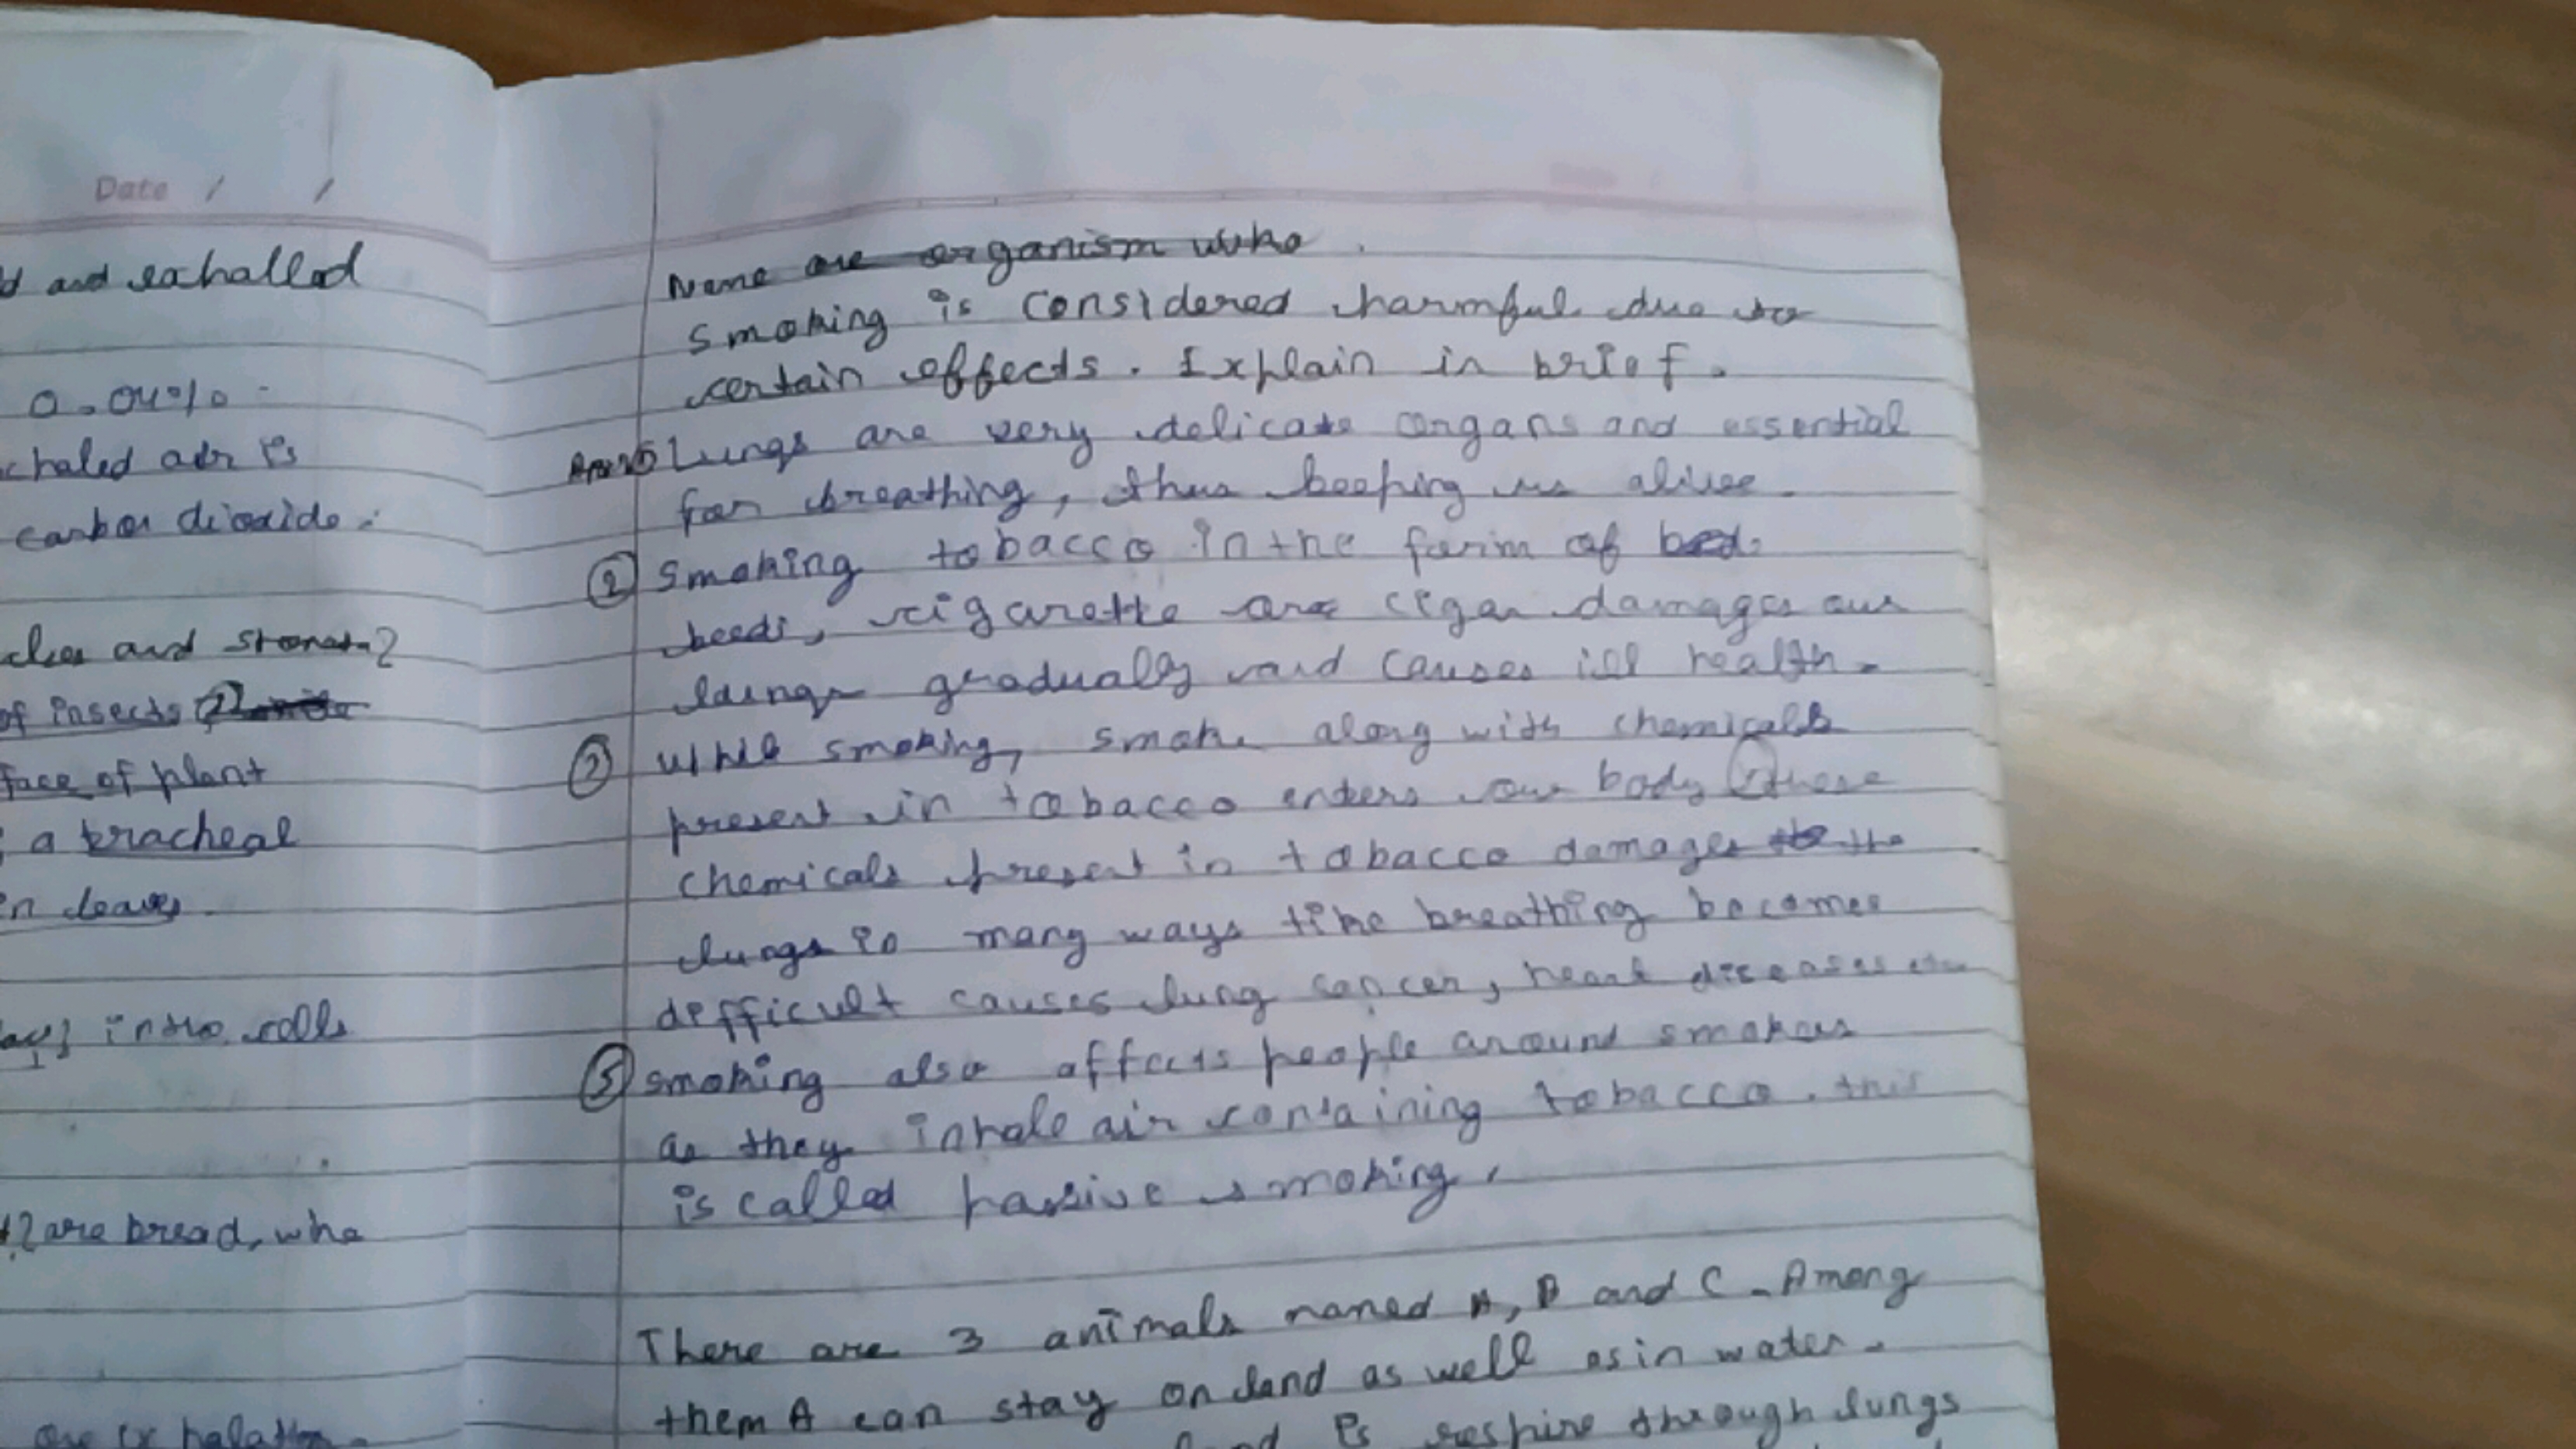 Date / /
d and exhalled
0.04%
chaled air is
carbon dioxide.
and stomata?
of insects
face of plant
a tracheal
in leaves.
into cells
are bread, who
Name are organism who.
Smoking is considered harmful due to
certain effects. Explain in brief.
Lungs are very delicate organs and essential
for breathing, thus keeping us alive.
② Smoking tobacco in the form of bed.
beedi, cigarette are cigar damages our
lungs gradually and causes ill health.
While smoking, smoke along with chemicals
present in tobacco enters our body these
chemicals present in tobacco damages to the
lungs in many ways like breathing becomes
defficult causes lung cancer, heart diseases etc
smoking also affects people around smokers
as they inhale air containing tobacco. this
is called passive smoking.
There are 3 animals named A, B and C. Among
them A can stay on land as well as in water.
is respire through lungs